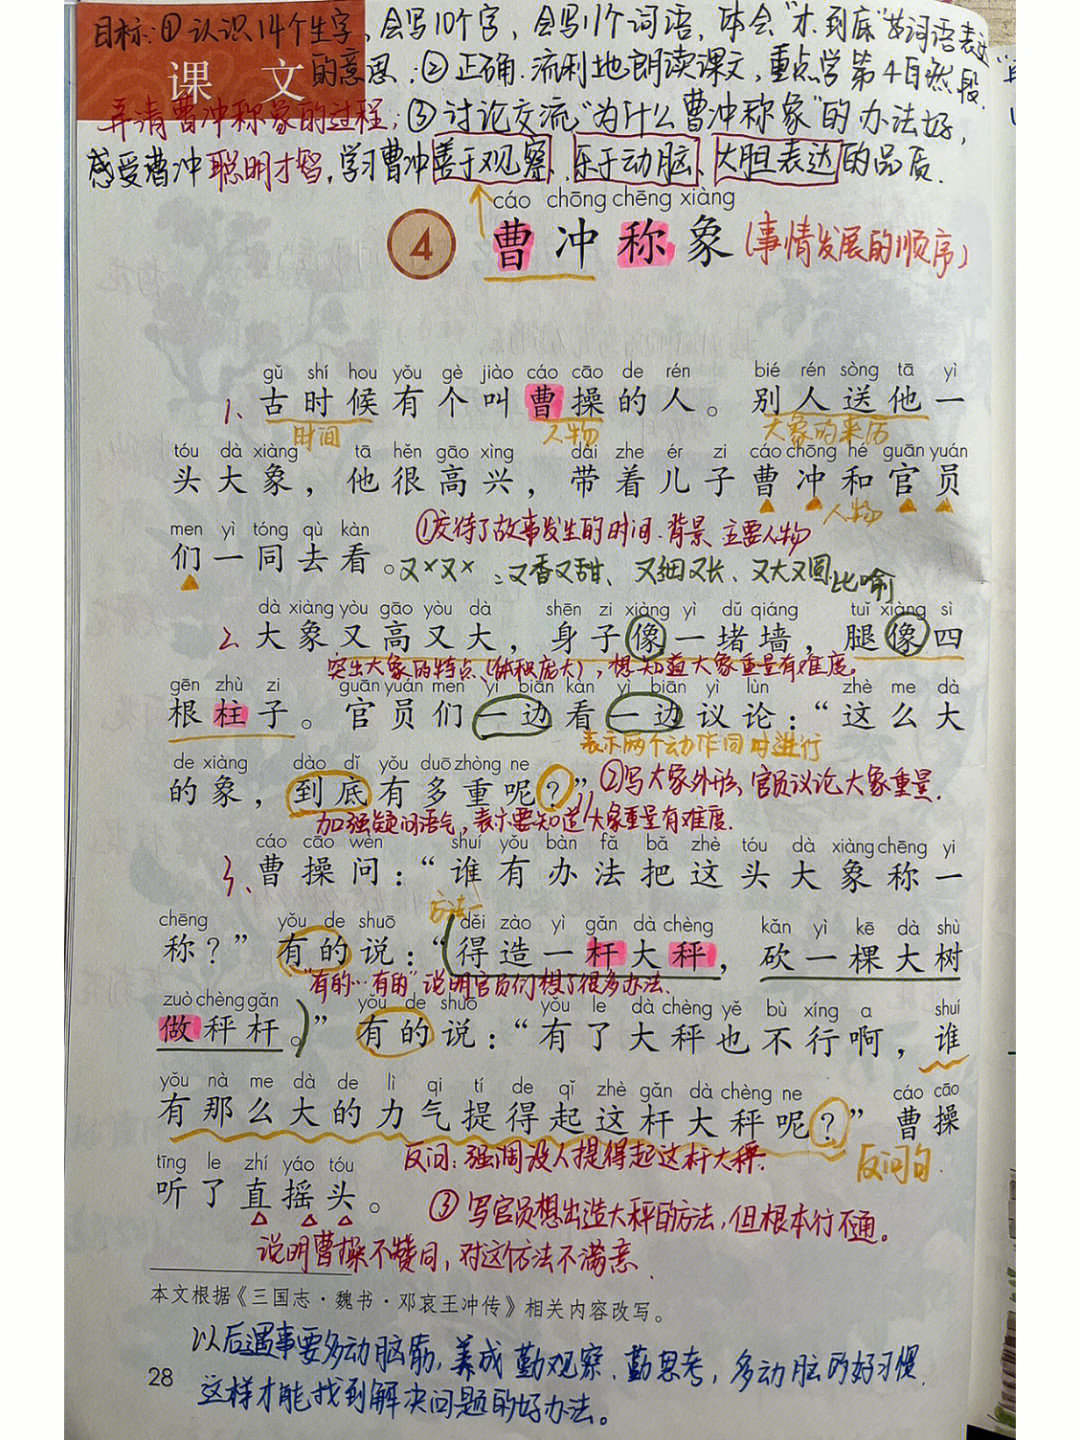 目标:①认识14个生字,会写10个字,会写11个词语,体会“才、到底”等词语表达
课 文
的意思;②正确、流利地朗读课文,重点学第4自然段,
弄清曹冲称象的过程;③讨论交流“为什么曹冲称象”的办法好,
感受曹冲聪明才智,学习曹冲善于观察、乐于动脑、大胆表达的品质.
cáo chōng chēng xiàng
4 曹冲称象(事情发展的顺序)
gǔ shí hou yǒu gè jiào cáo cāo de rén bié rén sòng tā yì
1、古时候有个叫曹操的人。别人送他一
时间 人物 大象的来历
tóu dà xiàng tā hěn gāo xìng dài zhe ér zi cáo chōng hé guān yuán
头大象,他很高兴,带着儿子曹冲和官员
人物
men yì tóng qù kàn
①交待了故事发生的时间、背景、主要人物
们一同去看。
又×又×:又香又甜、又细又长、又大又圆
比喻
dà xiàng yòu gāo yòu dà shēn zi xiàng yì dǔ qiáng tuǐ xiàng sì
2、大象又高又大,身子像一堵墙,腿像四
突出大象的特点(体积庞大),想知道大象重量有难度。
gēn zhù zi guān yuán men yì biān kàn yì biān yì lùn zhè me dà
根柱子。官员们一边看一边议论:“这么大
表示两个动作同时进行
de xiàng dào dǐ yǒu duō zhòng ne
的象,到底有多重呢?”
②写大象外形,官员议论大象重量.
加强疑问语气,表示要知道大象重量有难度.
cáo cāo wèn shuí yǒu bàn fǎ bǎ zhè tóu dà xiàng chēng yi
3、曹操问:“谁有办法把这头大象称一
方法一
chēng yǒu de shuō děi zào yì gǎn dà chèng kǎn yì kē dà shù
称?”有的说:“得造一杆大秤,砍一棵大树
“有的…有的”说明官员们想了很多办法.
zuò chèng gǎn yǒu de shuō yǒu le dà chèng yě bù xíng a shuí
做秤杆。”有的说:“有了大秤也不行啊,谁
yǒu nà me dà de lì qi tí de qǐ zhè gǎn dà chèng ne cáo cāo
有那么大的力气提得起这杆大秤呢?”曹操
反问:强调没人提得起这杆大秤.
反问句.
tīng le zhí yáo tóu
听了直摇头。
③写官员想出造大秤的方法,但根本行不通。
说明曹操不赞同,对这个方法不满意.
本文根据《三国志·魏书·邓哀王冲传》相关内容改写。
以后遇事要多动脑筋,养成勤观察、勤思考,多动脑的好习惯.
28
这样才能找到解决问题的好办法。